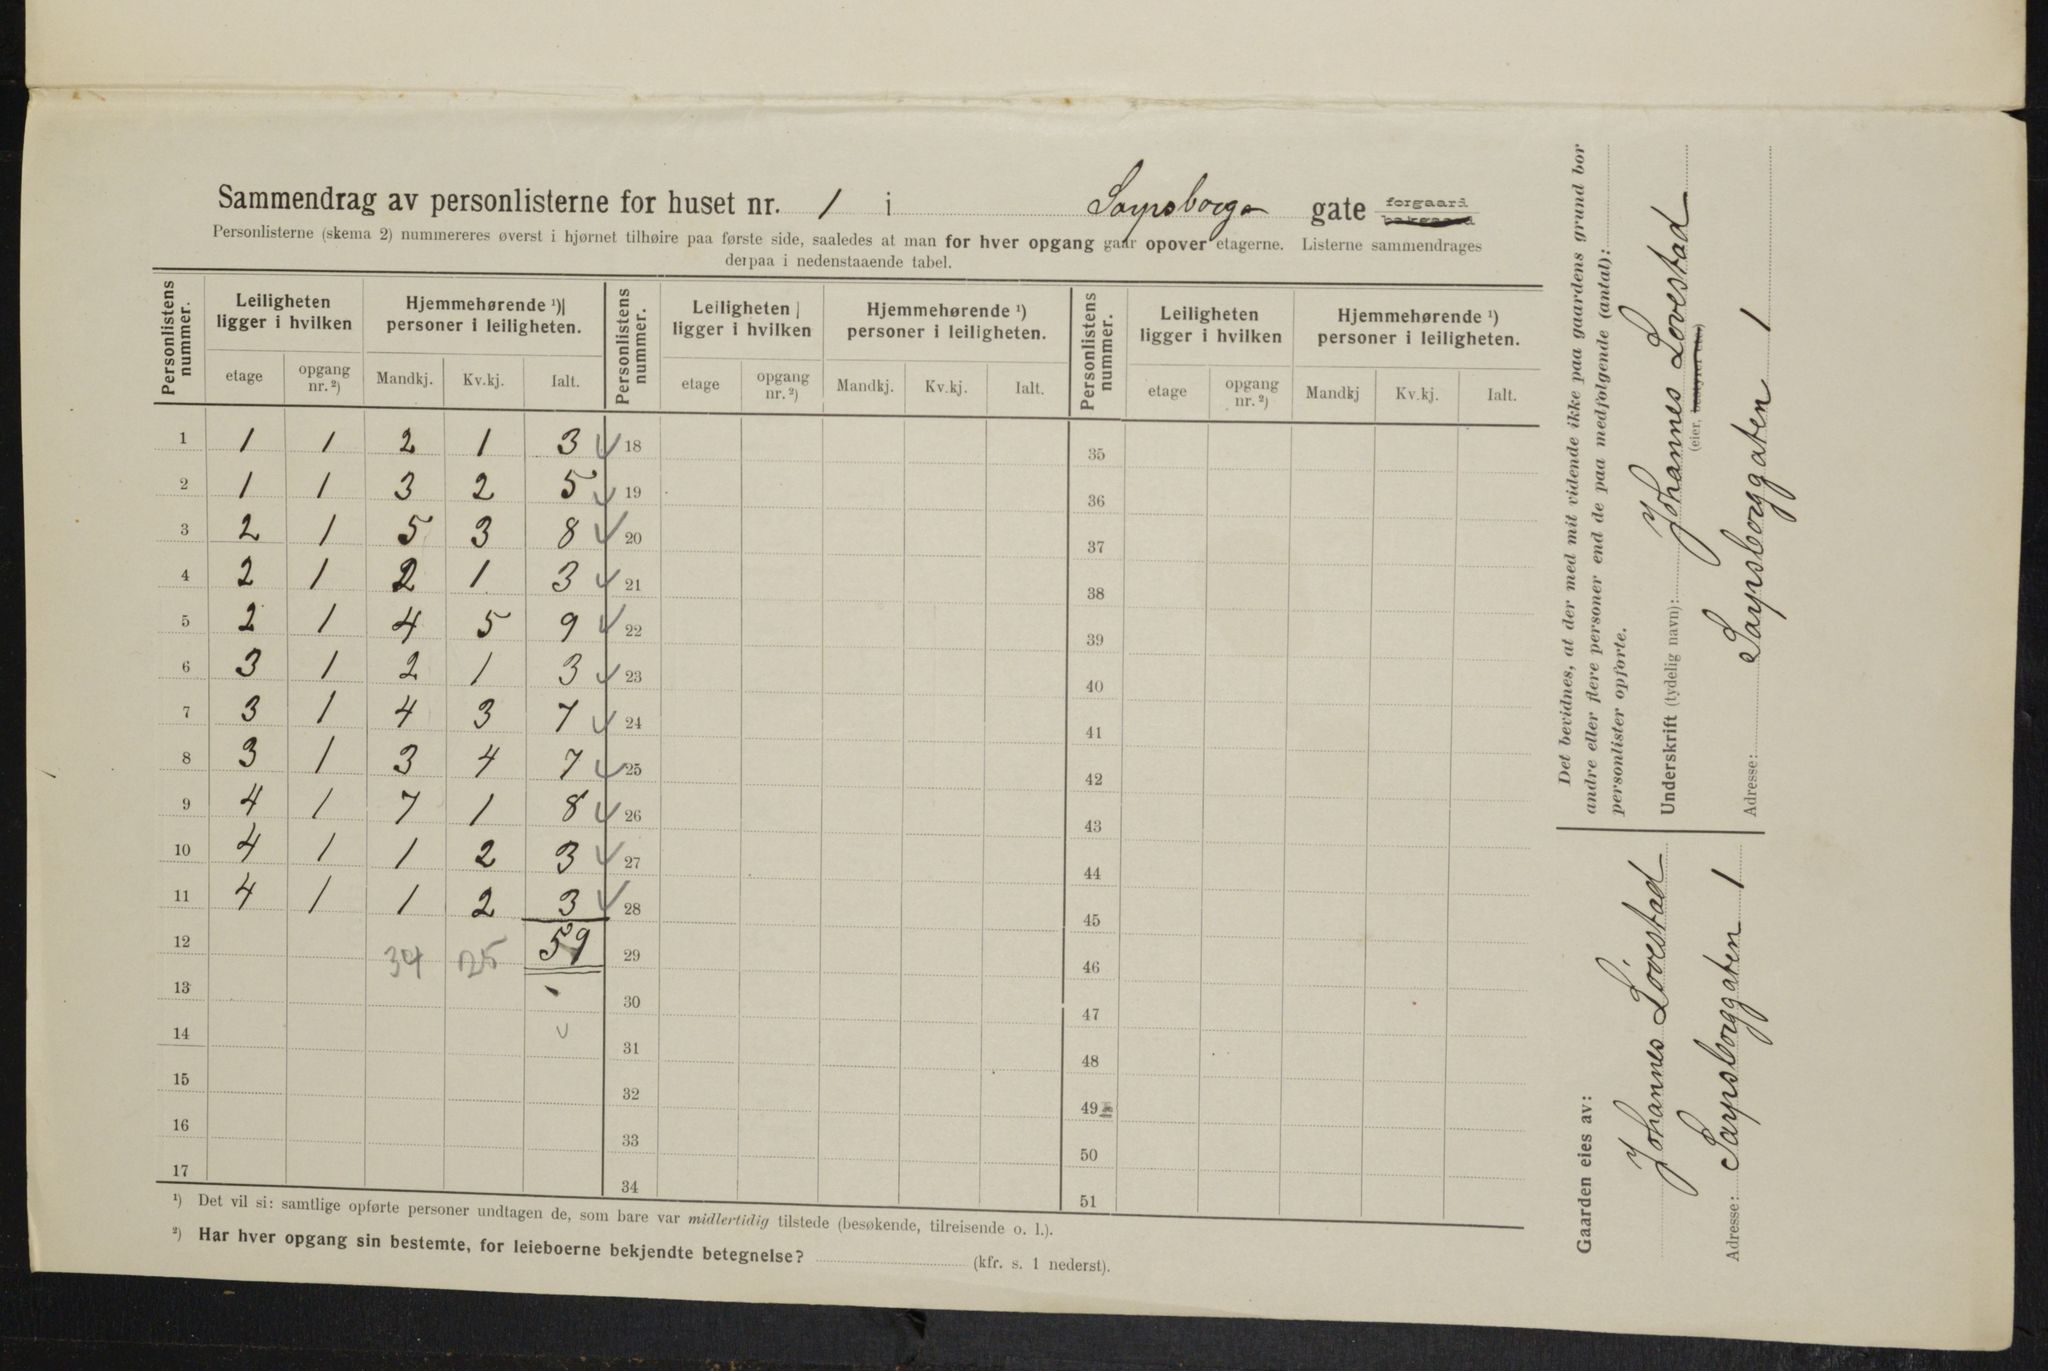 Sammendrag av personlisterne for huset nr. 1 i Sarpsborg gate forgaard bakgaard
Personlisterne (skema 2) nummereres øverst i hjørnet tilhøire paa første side, saaledes at man for hver opgang gaar opover etagerne. Listerne sammendrages
derpaa i nedenstaaende tabel.
Personlistens nummer. Leiligheten ligger i hvilken Hjemmehørende ¹) personer i leiligheten. Personlistens nummer. Leiligheten ligger i hvilken Hjemmehørende ¹) personer i leiligheten. Personlistens nummer. Leiligheten ligger i hvilken Hjemmehørende ¹) personer i leiligheten.
etage opgang nr. ²) Mandkj. Kv.kj. Ialt. etage opgang nr. ²) Mandkj. Kv.kj. Ialt. etage opgang nr. ²) Mandkj Kv.kj. Ialt.
1 1 1 2 1 3 18 35
2 1 1 3 2 5 19 36
3 2 1 5 3 8 20 37
4 2 1 2 1 3 21 38
5 2 1 4 5 9 22 39
6 3 1 2 1 3 23 40
7 3 1 4 3 7 24 41
8 3 1 3 4 7 25 42
9 4 1 7 1 8 26 43
10 4 1 1 2 3 27 44
11 4 1 1 2 3 28 45
12 34 25 59 29 46
13 30 47
14 31 48
15 32 49
16 33 50
17 34 51
¹) Det vil si: samtlige opførte personer undtagen de, som bare var midlertidig tilstede (besøkende, tilreisende o. l.).
²) Har hver opgang sin bestemte, for leieboerne bekjendte betegnelse? (kfr. s. 1 nederst).
Det bevidnes, at der med mit vidende ikke paa gaardens grund bor
andre eller flere personer end de paa medfølgende (antal):
personlister opførte.
Underskrift (tydelig navn): Johannes Lövestad
(eier, bestyrer etc.)
Adresse: Sarpsborggaten 1
Gaarden eies av:
Johannes Lövestad
Adresse: Sarpsborggaten 1